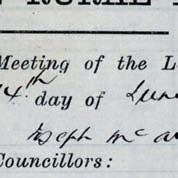 RURAL
Meeting of the L
4th day of June
Joseph Mc
Councillors: